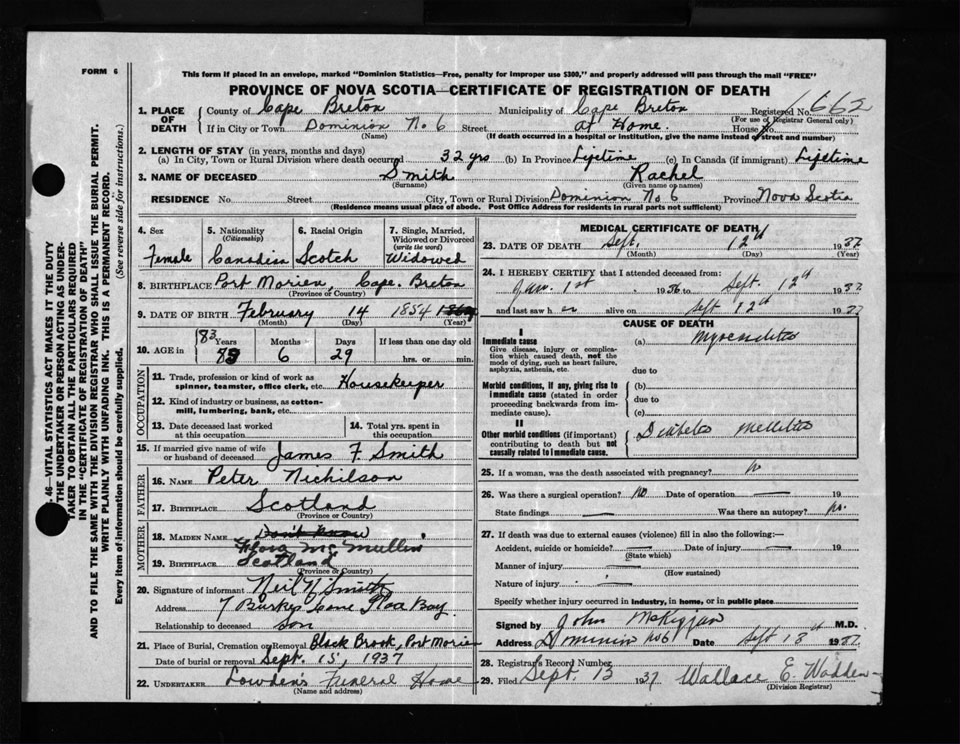 FORM 6
This form if placed in an envelope, marked "Dominion Statistics—Free, penalty for improper use $300," and properly addressed will pass through the mail "FREE"
PROVINCE OF NOVA SCOTIA—CERTIFICATE OF REGISTRATION OF DEATH
1. PLACE OF DEATH County of Cape Breton Municipality of Cape Breton Registered No. 662
(For use of Registrar General only)
If in City or Town Dominion No 6 Street at Home. House No
(Name) (If death occurred in a hospital or institution, give the name instead of street and number)
2. LENGTH OF STAY (in years, months and days)
(a) In City, Town or Rural Division where death occurred 32 yrs (b) In Province Lifetime (c) In Canada (if immigrant) Lifetime
3. NAME OF DECEASED Smith Rachel
(Surname) (Given name or names)
RESIDENCE No. Street City, Town or Rural Division Dominion No 6 Province Nova Scotia
(Residence means usual place of abode. Post Office Address for residents in rural parts not sufficient)
4. Sex 5. Nationality (Citizenship) 6. Racial Origin 7. Single, Married, Widowed or Divorced (write the word)
Female Canadian Scotch Widowed
8. BIRTHPLACE Port Morien, Cape Breton
(Province or Country)
9. DATE OF BIRTH February 14 1854
(Month) (Day) (Year)
10. AGE in 83 Years Months Days If less than one day old
83 6 29 hrs. or min.
OCCUPATION
11. Trade, profession or kind of work as spinner, teamster, office clerk, etc. Housekeeper
12. Kind of industry or business, as cotton-mill, lumbering, bank, etc.
13. Date deceased last worked at this occupation 14. Total yrs. spent in this occupation
15. If married give name of wife or husband of deceased James F. Smith
FATHER
16. NAME Peter Nichilson
17. BIRTHPLACE Scotland
(Province or Country)
MOTHER
18. MAIDEN NAME Don't Know
Flora McMullin
19. BIRTHPLACE Scotland
(Province or Country)
20. Signature of informant Neil H Smith
Address 7 Burkes Lane Glace Bay
Relationship to deceased son
21. Place of Burial, Cremation or Removal Black Brook, Port Morien
Date of burial or removal Sept. 15, 1937
22. UNDERTAKER Lowden's Funeral Home
(Name and address)
MEDICAL CERTIFICATE OF DEATH
23. DATE OF DEATH Sept. 12th 1937
(Month) (Day) (Year)
24. I HEREBY CERTIFY that I attended deceased from:
Jan. 1st 1936 to Sept. 12th 1937
and last saw her alive on Sept 12th 1937
CAUSE OF DEATH
I
Immediate cause (a) Myocarditis
Give disease, injury or complication which caused death, not the mode of dying, such as heart failure, asphyxia, asthenia, etc.
due to
Morbid conditions, if any, giving rise to immediate cause (stated in order proceeding backwards from immediate cause).
(b)
due to
(c)
II
Other morbid conditions (if important) contributing to death but not causally related to immediate cause.
Diabetes Mellitus
25. If a woman, was the death associated with pregnancy? No
26. Was there a surgical operation? No Date of operation — 19
State findings — Was there an autopsy? No.
27. If death was due to external causes (violence) fill in also the following:—
Accident, suicide or homicide? — Date of injury — 19
(State which)
Manner of injury —
(How sustained)
Nature of injury —
Specify whether injury occurred in industry, in home, or in public place
Signed by John McKiggan M.D.
Address Dominion No6 Date Sept 13th 1937.
28. Registrar's Record Number
29. Filed Sept. 13 1937 Wallace E. Wadden
(Division Registrar)
.46—VITAL STATISTICS ACT MAKES IT THE DUTY
THE UNDERTAKER OR PERSON ACTING AS UNDER-
TAKER TO OBTAIN ALL THE PARTICULARS REQUIRED
IN THE "CERTIFICATE OF REGISTRATION OF DEATH"
AND TO FILE THE SAME WITH THE DIVISION REGISTRAR WHO SHALL ISSUE THE BURIAL PERMIT.
WRITE PLAINLY WITH UNFADING INK. THIS IS A PERMANENT RECORD.
Every item of information should be carefully supplied. (See reverse side for instructions.)